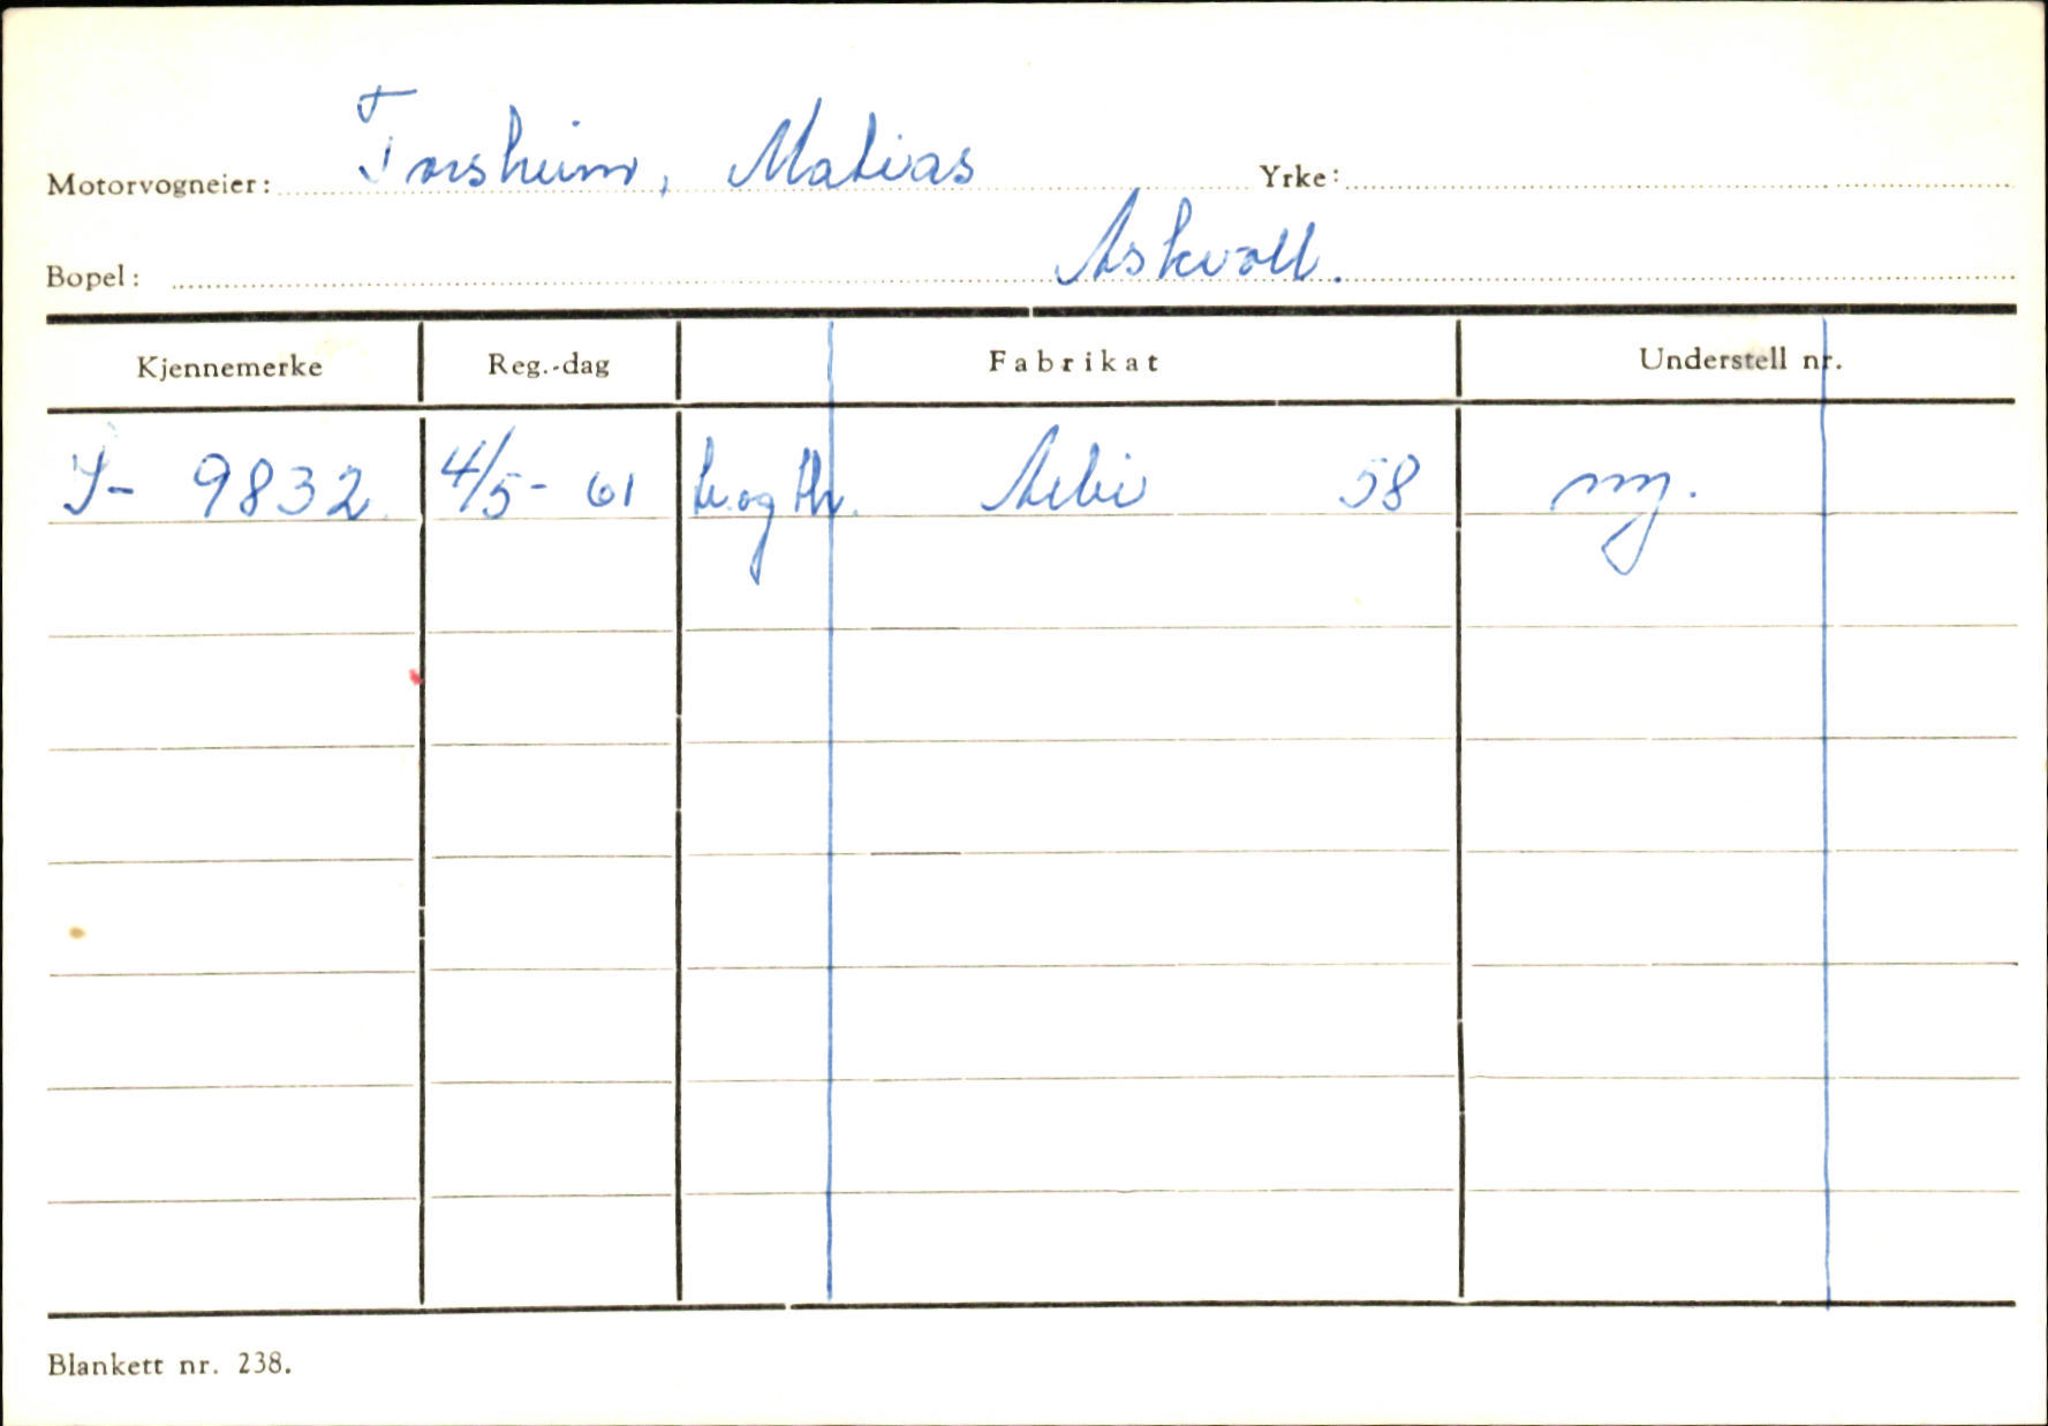 Motorvogneier: Torsheim, Matias Yrke:
Bopel: Askvoll.
Kjennemerke Reg.-dag Fabrikat Understell nr.
S- 9832 4/5- 61 58 ny.
Blankett nr. 238.